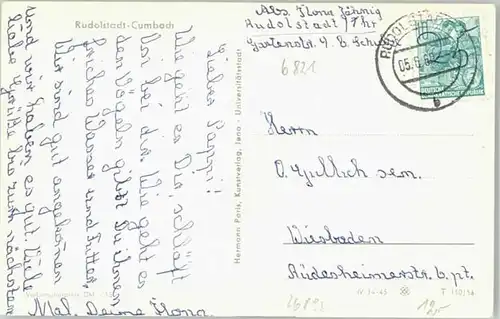 Rudolstadt-Cumbach
Abs. Ilona Jähnig
Rudolstadt/Thr
Gartenstr. 4 b. Schulze
6821
RUDOLSTADT
05.6.
DEUTSCHE
DEMOKRATISCHE REPUBLIK
Lieber Pappi!!
Wie geht es Dir, schläft
Von bei ihr. Wie geht es
den Vögeln gibst Du ihnen
frisches Wasser und Futter.
Wir sind gut angekommen
und wir haben es gut. Viele
liebe Grüße bis zum nächsten
Mal. Deine Ilona.
Hermann Paris, Kunstverlag, Jena - Universitätsstadt
Herrn
O. Gullich sem.
Wiesbaden
Rüdesheimerstr. 6. pt.